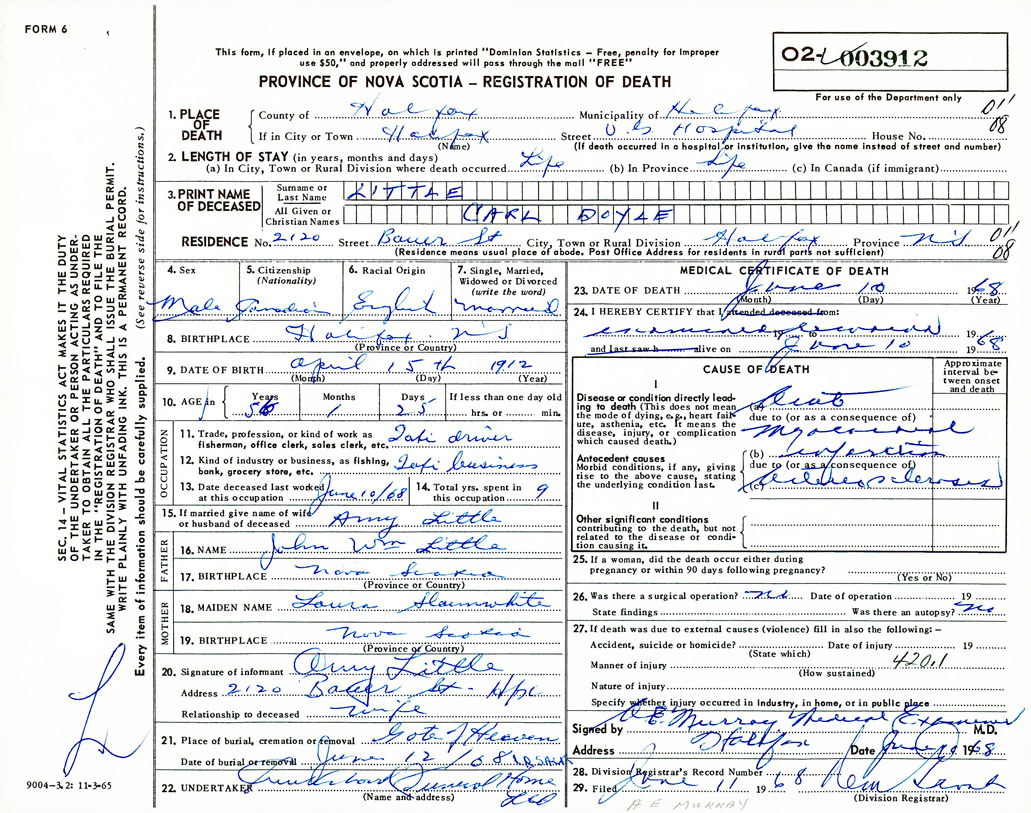 FORM 6
This form, if placed in an envelope, on which is printed "Dominion Statistics – Free, penalty for improper
use $50," and properly addressed will pass through the mail "FREE"
PROVINCE OF NOVA SCOTIA – REGISTRATION OF DEATH
02-L 003912
For use of the Department only
SEC. 14 – VITAL STATISTICS ACT MAKES IT THE DUTY
OF THE UNDERTAKER OR PERSON ACTING AS UNDERTAKER TO OBTAIN ALL THE PARTICULARS REQUIRED
IN THE "REGISTRATION OF DEATH" AND TO FILE THE
SAME WITH THE DIVISION REGISTRAR WHO SHALL ISSUE THE BURIAL PERMIT.
WRITE PLAINLY WITH UNFADING INK. THIS IS A PERMANENT RECORD.
Every item of information should be carefully supplied. (See reverse side for instructions.)
1. PLACE OF DEATH
County of Halifax Municipality of Halifax 011
If in City or Town Halifax Street V.G Hospital House No. 08
(Name) (If death occurred in a hospital or institution, give the name instead of street and number)
2. LENGTH OF STAY (in years, months and days)
(a) In City, Town or Rural Division where death occurred Life (b) In Province Life (c) In Canada (if immigrant)
3. PRINT NAME OF DECEASED
Surname or Last Name LITTLE
All Given or Christian Names CARL DOYLE
RESIDENCE No. 2120 Street Bauer St City, Town or Rural Division Halifax Province N.S 011
(Residence means usual place of abode. Post Office Address for residents in rural parts not sufficient) 08
4. Sex Male
5. Citizenship (Nationality) Canadian
6. Racial Origin English
7. Single, Married, Widowed or Divorced (write the word) married
8. BIRTHPLACE Halifax N.S
(Province or Country)
9. DATE OF BIRTH April 15th 1912
(Month) (Day) (Year)
10. AGE in Years 56 Months 1 Days 25 If less than one day old
hrs. or min.
OCCUPATION
11. Trade, profession, or kind of work as fisherman, office clerk, sales clerk, etc. Taxi driver
12. Kind of industry or business, as fishing, bank, grocery store, etc. Taxi business
13. Date deceased last worked at this occupation June 10/68 14. Total yrs. spent in this occupation 9
15. If married give name of wife or husband of deceased Amy Little
FATHER
16. NAME John Wm Little
17. BIRTHPLACE Nova Scotia
(Province or Country)
MOTHER
18. MAIDEN NAME Laura Slaunwhite
19. BIRTHPLACE Nova Scotia
(Province or Country)
20. Signature of informant Amy Little
Address 2120 Bauer St - Hfx
Relationship to deceased Wife
21. Place of burial, cremation or removal Gate of Heaven
Date of burial or removal June 12/68
22. UNDERTAKER Funeral Home
(Name and address) Ltd
9004-3.2: 11-3-65
MEDICAL CERTIFICATE OF DEATH
23. DATE OF DEATH June 10 1968
(Month) (Day) (Year)
24. I HEREBY CERTIFY that I attended deceased from:
examined deceased 19 to 19
and last saw h alive on June 10 1968
CAUSE OF DEATH
Approximate interval between onset and death
I
Disease or condition directly leading to death (This does not mean the mode of dying, e.g., heart failure, asthenia, etc. It means the disease, injury, or complication which caused death.)
(a) Acute
due to (or as a consequence of)
myocardial
Antecedent causes
Morbid conditions, if any, giving rise to the above cause, stating the underlying condition last.
(b) infarction
due to (or as a consequence of)
(c) Arteriosclerosis
II
Other significant conditions
contributing to the death, but not related to the disease or condition causing it.
25. If a woman, did the death occur either during
pregnancy or within 90 days following pregnancy?
(Yes or No)
26. Was there a surgical operation? No Date of operation 19
State findings Was there an autopsy? No
27. If death was due to external causes (violence) fill in also the following: –
Accident, suicide or homicide? Date of injury 19
(State which)
Manner of injury 420.1
(How sustained)
Nature of injury
Specify whether injury occurred in industry, in home, or in public place
Signed by A E. Murray Medical Examiner M.D.
Address Halifax Date June 1968
28. Division Registrar's Record Number
29. Filed June 11 1968
(Division Registrar)
A E MURRAY